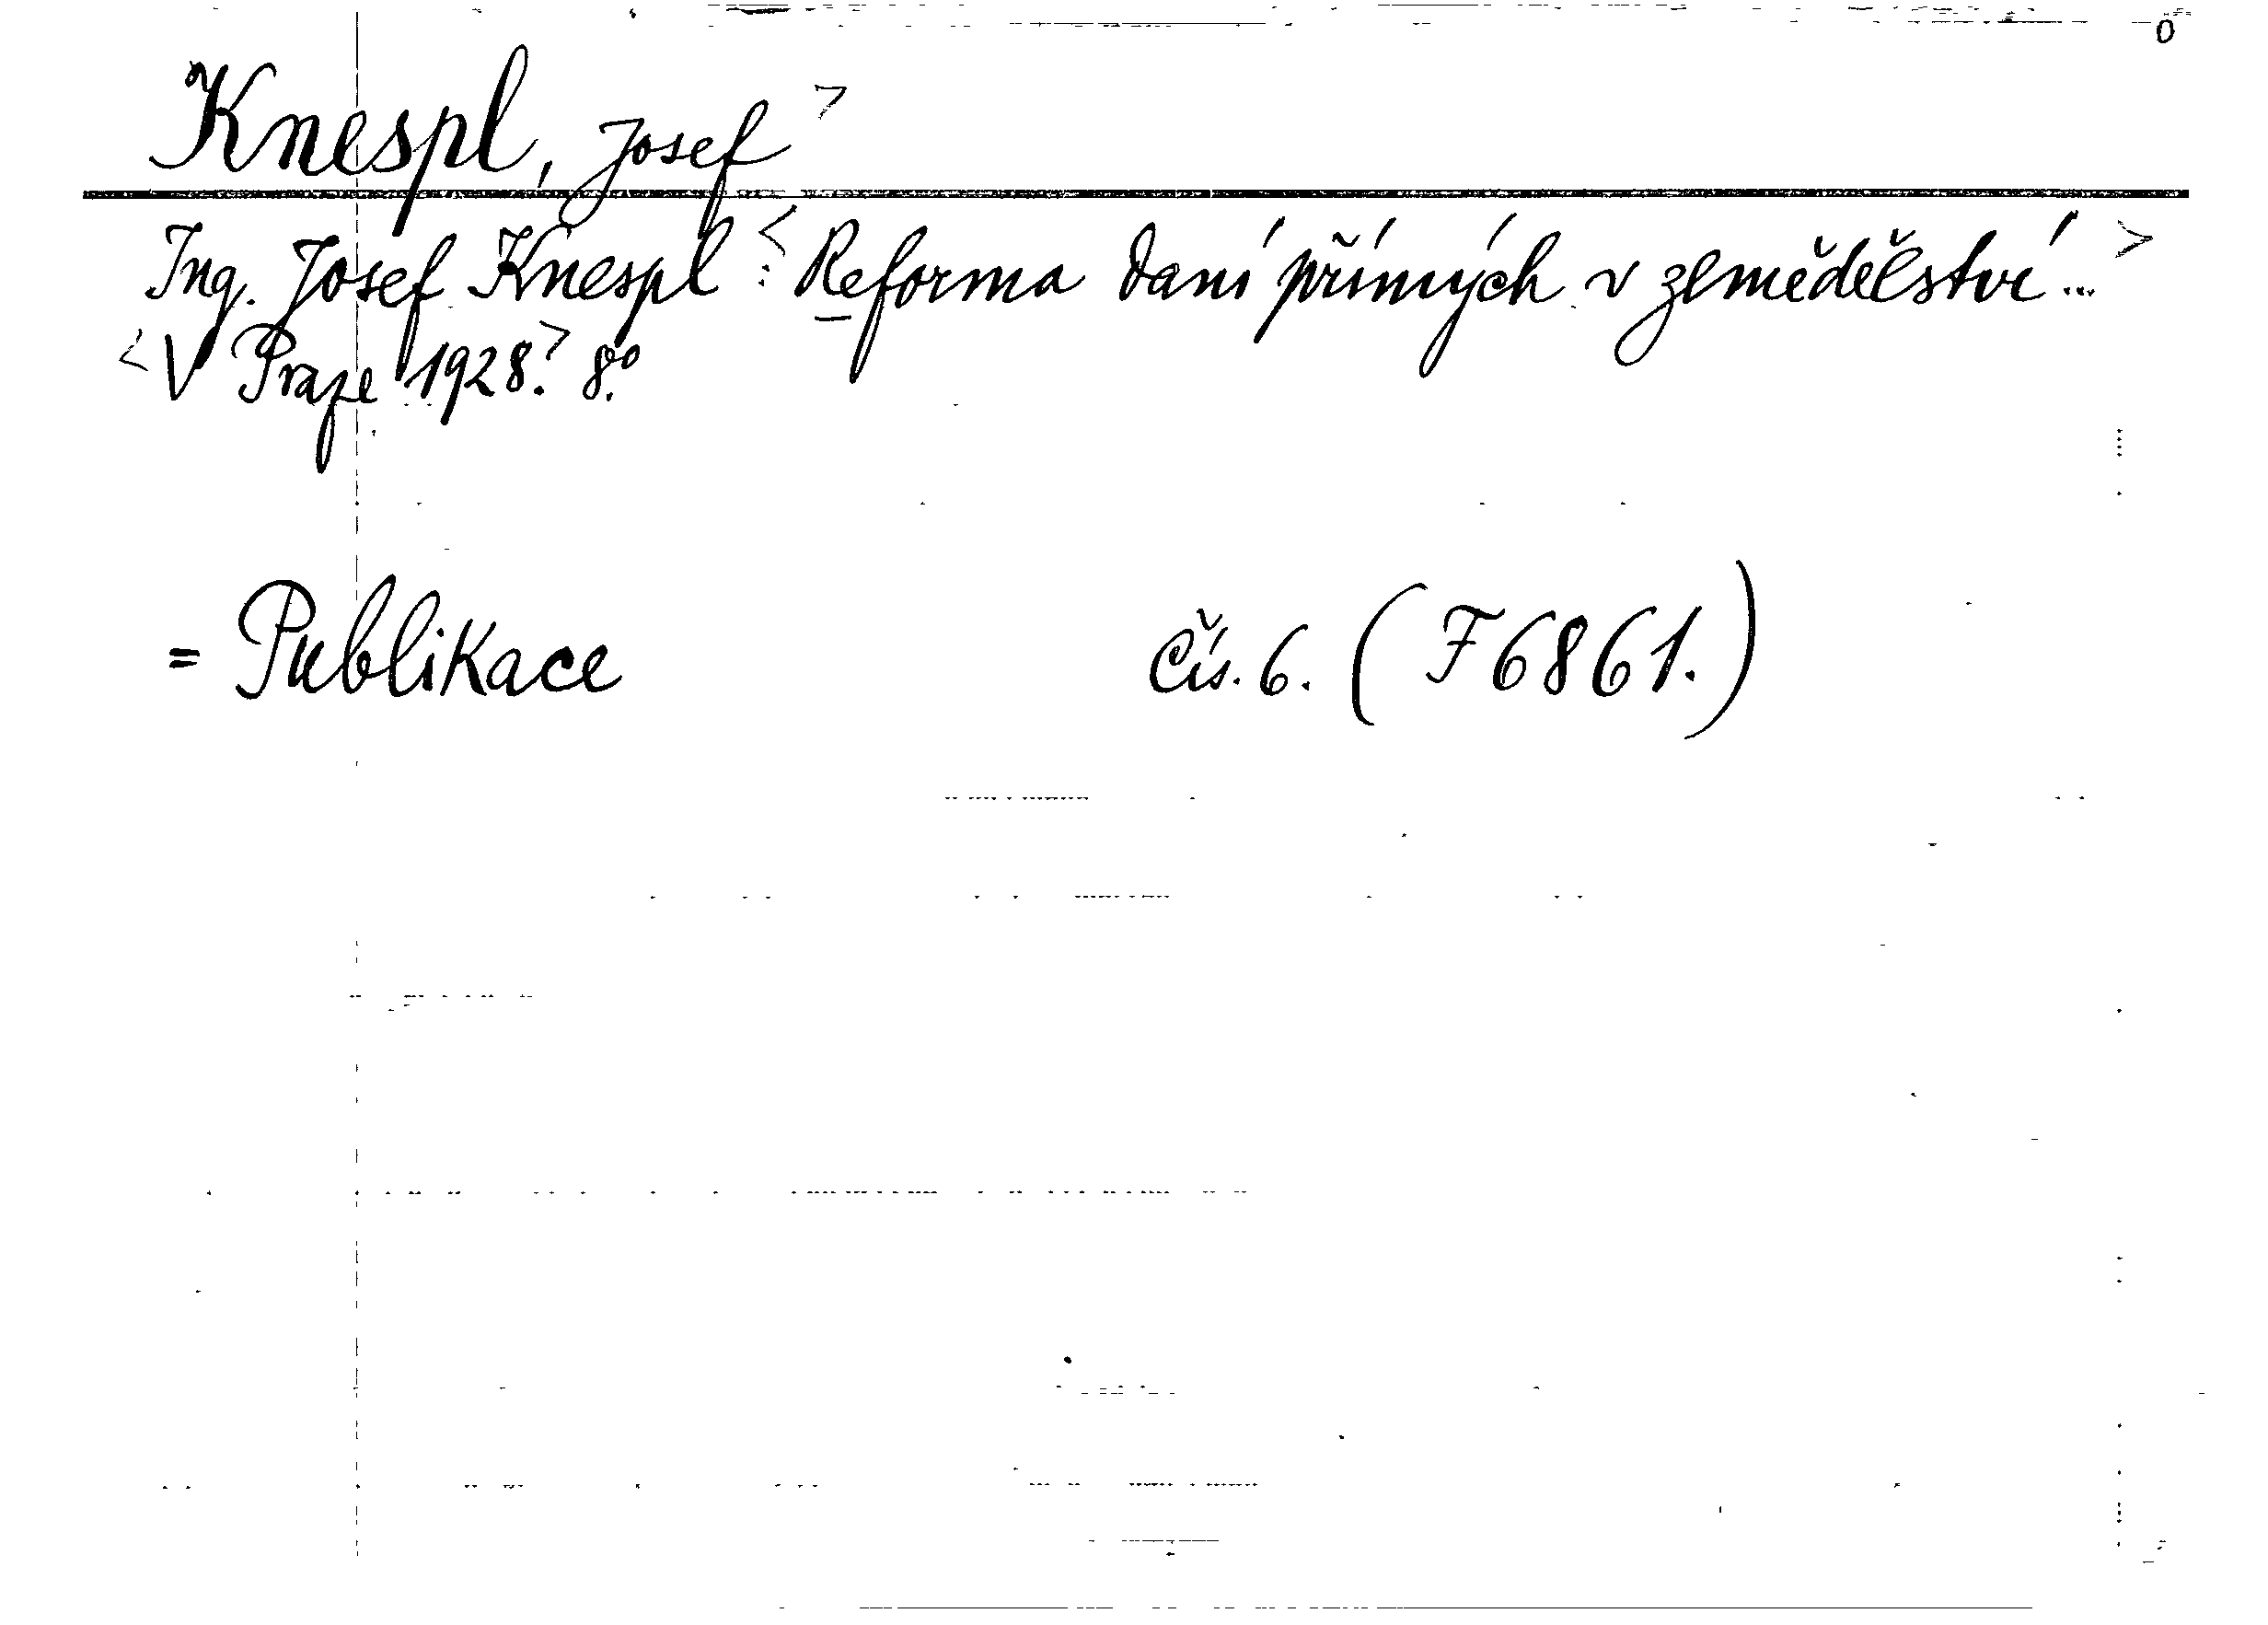 Knespl, Josef >
Ing. Josef Knespl : < Reforma daní přímých v zemědělství ... >
< V Praze 1928. > 8.°
= Publikace čís. 6. ( F 6861. )